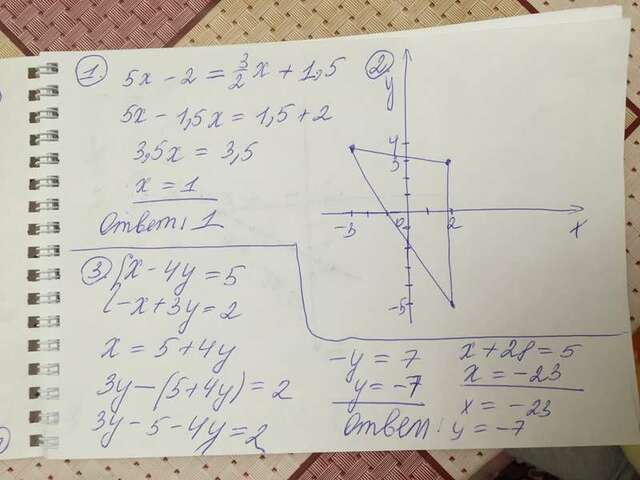 ① 5x - 2 = 3/2 x + 1,5
5x - 1,5x = 1,5 + 2
3,5x = 3,5
x = 1
Ответ: 1
②
y
4
3
-3
2
x
-5
③ { x - 4y = 5
-x + 3y = 2
x = 5 + 4y
3y - (5 + 4y) = 2
3y - 5 - 4y = 2
-y = 7
y = -7
x + 28 = 5
x = -23
Ответ: x = -23
y = -7